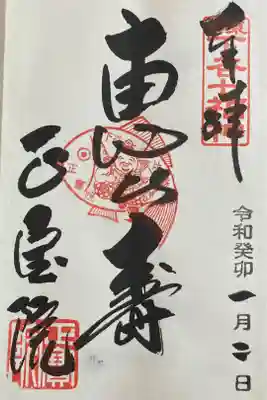 奉拝
恵比壽
正宝院
令和癸卯
一月二日